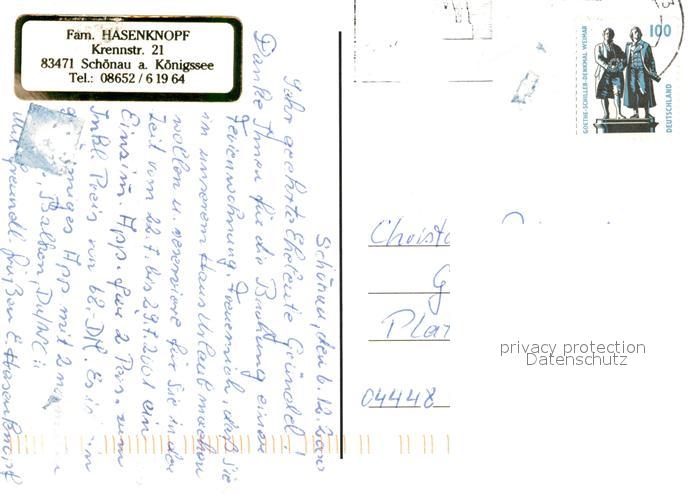 Fam. HASENKNOPF
Krennstr. 21
83471 Schönau a. Königssee
Tel.: 08652 / 6 19 64
GOETHE-SCHILLER-DENKMAL WEIMAR
100
DEUTSCHLAND
Schönau, den 6.12.2000
Sehr geehrte Eheleute Gründel!
Danke Ihnen für die Buchung einer
Ferienwohnung. Freue mich, daß Sie
in unserem Haus Urlaub machen
wollen u. reserviere für Sie in der
Zeit vom 22.7. bis 29.7.2001 ein
Einzim. App. für 2 Pers. zum
Inkl. Preis von 62.- DM. Es ist
App mit 2
Balkon, Du/WC
mit freundl. Grüßen E. Hasenknopf
Christo
G
Pla
04448
privacy protection
Datenschutz